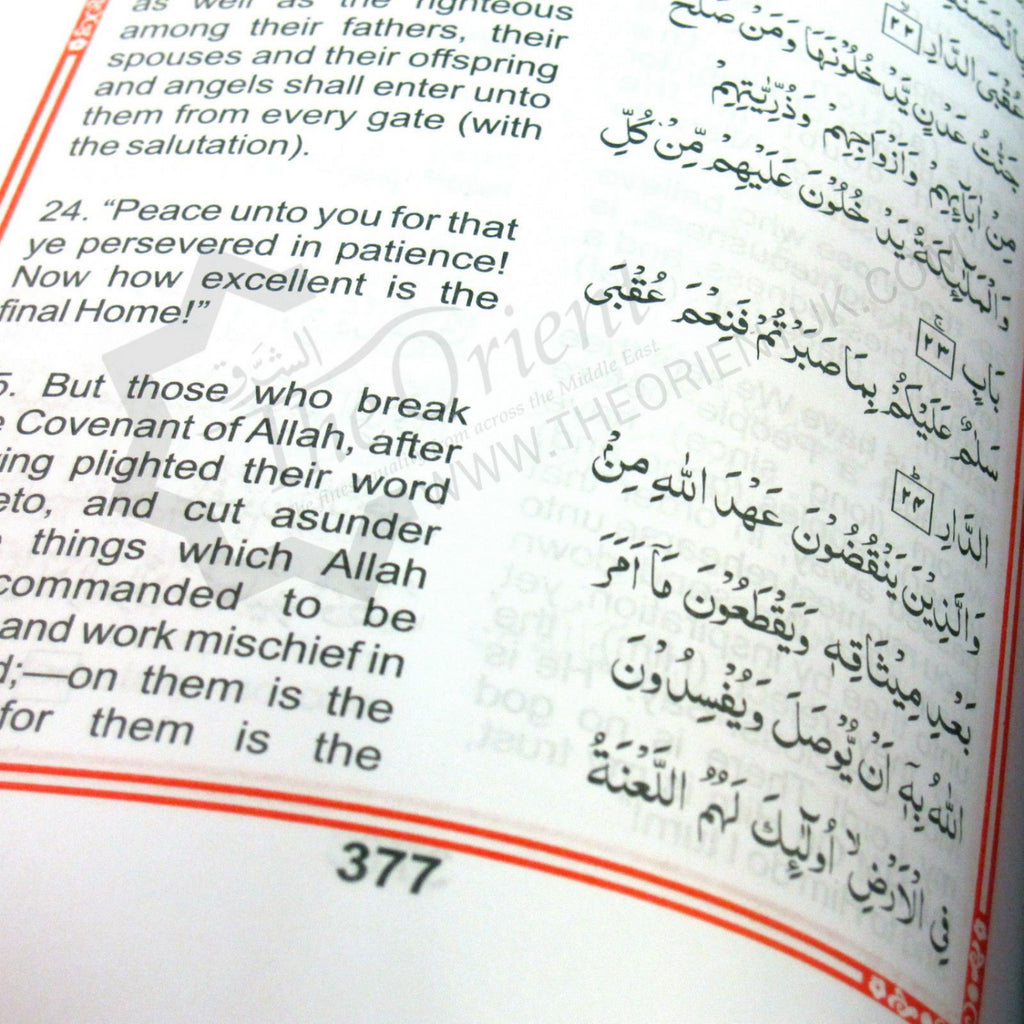 as well as the righteous
among their fathers, their
spouses and their offspring
and angels shall enter unto
them from every gate (with
the salutation).
24. “Peace unto you for that
ye persevered in patience!
Now how excellent is the
final Home!”
5. But those who break
Covenant of Allah, after
ing plighted their word
eto, and cut asunder
things which Allah
commanded to be
and work mischief in
d;—on them is the
for them is the
عُقْبَى الدَّارِ ﴿٢٢﴾
جَنّٰتُ عَدْنٍ يَّدْخُلُوْنَهَا وَمَنْ صَلَحَ
مِنْ اٰبَآئِهِمْ وَاَزْوَاجِهِمْ وَذُرِّيّٰتِهِمْ
وَالْمَلٰٓئِكَةُ يَدْخُلُوْنَ عَلَيْهِمْ مِّنْ كُلِّ
بَابٍ ﴿٢٣﴾
سَلٰمٌ عَلَيْكُمْ بِمَا صَبَرْتُمْ فَنِعْمَ عُقْبَى
الدَّارِ ﴿٢٤﴾
وَالَّذِيْنَ يَنْقُضُوْنَ عَهْدَ اللّٰهِ مِنْۢ
بَعْدِ مِيْثَاقِهٖ وَيَقْطَعُوْنَ مَآ اَمَرَ
اللّٰهُ بِهٖٓ اَنْ يُّوْصَلَ وَيُفْسِدُوْنَ
فِي الْاَرْضِ ۙ اُولٰٓئِكَ لَهُمُ اللَّعْنَةُ
377
الشرق
The Orient
finest quality from across the Middle East
WWW.THEORIENTUK.COM